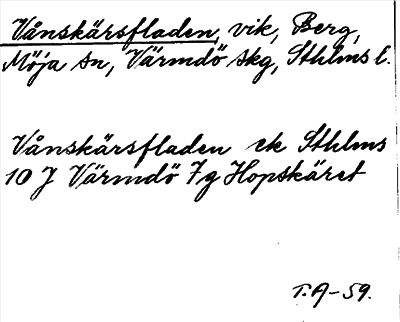 Vånskärsfladen, vik, Berg,
Möja sn, Värmdö skg, Sthlms l.
Vånskärsfladen ek Sthlms
10 J Värmdö 7g Hopskäret
T.A-59.